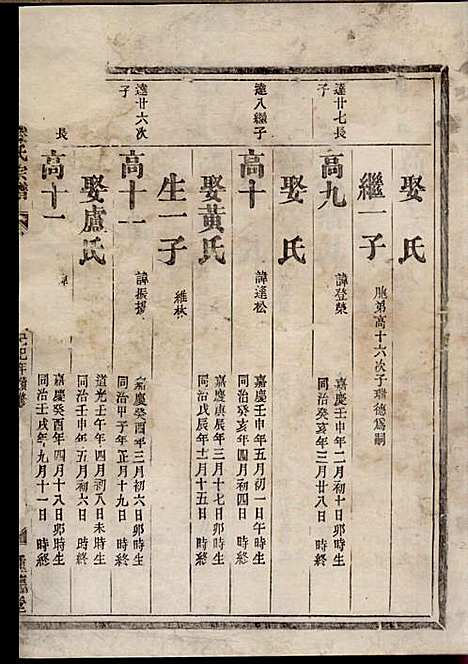 娶　氏
繼一子　胞弟高十六次子
達廿七長子
高九　諱登榮　嘉慶壬申年二月初十日卯時生
同治癸亥年三月廿八日　時終
娶　氏
達八繼子
高十　諱逢松　嘉慶壬申年五月初一日午時生
同治癸亥年四月初四日　時終
娶黃氏　嘉慶庚辰年三月十七日卯時生
同治戊辰年十二月十五日　時終
生一子　維林
達廿六次子
高十一　諱振　嘉慶癸酉年三月初六日卯時生
同治甲子年正月十九日　時終
娶盧氏　道光壬午年四月初八日未時生
同治壬申年五月初六日　時終
長
高十二　嘉慶癸酉年四月十八日卯時生
同治壬戌年九月十一日　時終
氏宗譜